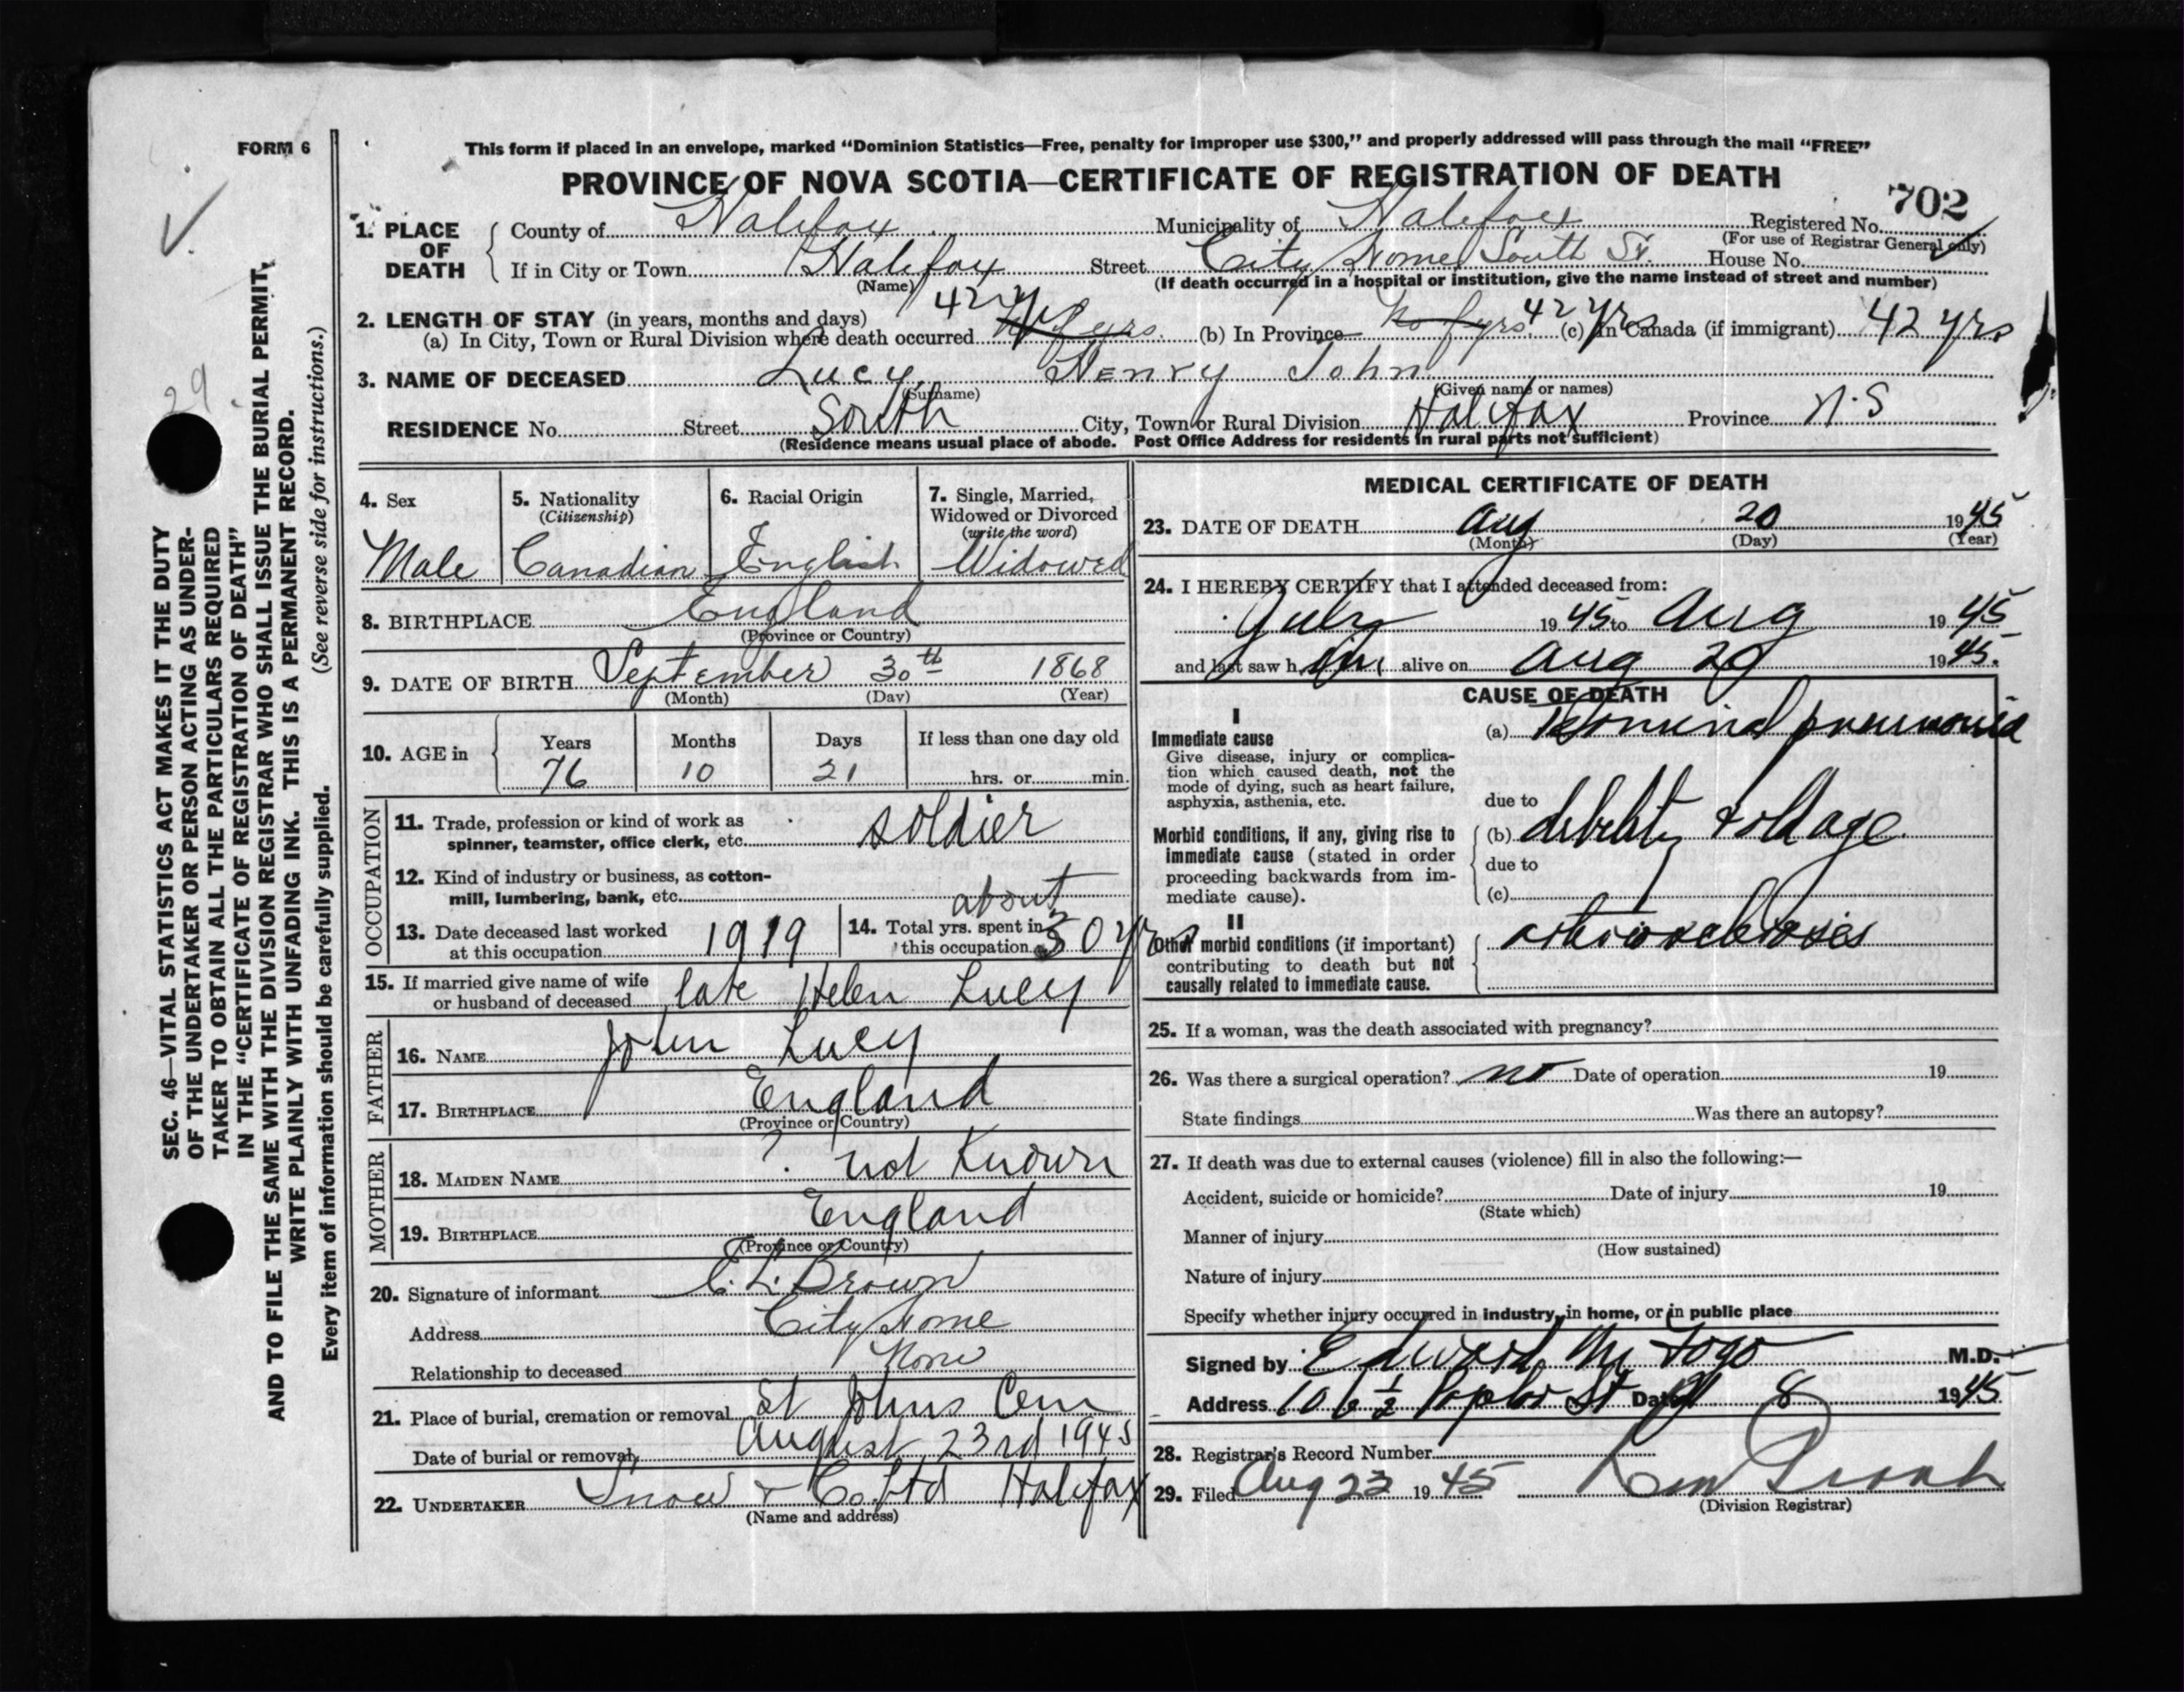 FORM 6
This form if placed in an envelope, marked “Dominion Statistics—Free, penalty for improper use $300,” and properly addressed will pass through the mail “FREE”
PROVINCE OF NOVA SCOTIA—CERTIFICATE OF REGISTRATION OF DEATH
702
1. PLACE OF DEATH County of Halifax Municipality of Halifax Registered No.
(For use of Registrar General only)
If in City or Town Halifax Street City Home South St. House No.
(Name) (If death occurred in a hospital or institution, give the name instead of street and number)
2. LENGTH OF STAY (in years, months and days)
(a) In City, Town or Rural Division where death occurred 42 yrs (b) In Province 42 yrs (c) In Canada (if immigrant) 42 yrs
3. NAME OF DECEASED Lucy, Henry John
(Surname) (Given name or names)
RESIDENCE No. Street South City, Town or Rural Division Halifax Province N.S
(Residence means usual place of abode. Post Office Address for residents in rural parts not sufficient)
4. Sex
Male
5. Nationality
(Citizenship)
Canadian
6. Racial Origin
English
7. Single, Married,
Widowed or Divorced
(write the word)
Widowed
8. BIRTHPLACE England
(Province or Country)
9. DATE OF BIRTH September 30th 1868
(Month) (Day) (Year)
10. AGE in Years Months Days If less than one day old
76 10 21 hrs. or min.
OCCUPATION
11. Trade, profession or kind of work as
spinner, teamster, office clerk, etc. soldier
12. Kind of industry or business, as cotton-
mill, lumbering, bank, etc.
13. Date deceased last worked
at this occupation 1919
14. Total yrs. spent in
this occupation about 30 yrs
15. If married give name of wife
or husband of deceased late Helen Lucy
FATHER
16. NAME John Lucy
17. BIRTHPLACE England
(Province or Country)
MOTHER
18. MAIDEN NAME ? not Known
19. BIRTHPLACE England
(Province or Country)
20. Signature of informant C. L. Brown
Address City Home
Relationship to deceased None
21. Place of burial, cremation or removal St Johns Cem
Date of burial or removal August 23rd 1945
22. UNDERTAKER Snow & Co Ltd Halifax
(Name and address)
MEDICAL CERTIFICATE OF DEATH
23. DATE OF DEATH Aug 20 1945
(Month) (Day) (Year)
24. I HEREBY CERTIFY that I attended deceased from:
July 1945 to Aug 1945
and last saw him alive on Aug 20 1945.
CAUSE OF DEATH
I
Immediate cause
Give disease, injury or complica-
tion which caused death, not the
mode of dying, such as heart failure,
asphyxia, asthenia, etc.
(a) pneumonia
due to
Morbid conditions, if any, giving rise to
immediate cause (stated in order
proceeding backwards from im-
mediate cause).
(b) debility & old age
due to
(c)
II
Other morbid conditions (if important)
contributing to death but not
causally related to immediate cause.
arteriosclerosis
25. If a woman, was the death associated with pregnancy?
26. Was there a surgical operation? no Date of operation 19
State findings Was there an autopsy?
27. If death was due to external causes (violence) fill in also the following:—
Accident, suicide or homicide? Date of injury 19
(State which)
Manner of injury
(How sustained)
Nature of injury
Specify whether injury occurred in industry, in home, or in public place
Signed by Edward M. Fogo M.D.
Address 106 ½ St Date 8 1945
28. Registrar's Record Number
29. Filed Aug 23 1945
(Division Registrar)
SEC. 46—VITAL STATISTICS ACT MAKES IT THE DUTY
OF THE UNDERTAKER OR PERSON ACTING AS UNDER-
TAKER TO OBTAIN ALL THE PARTICULARS REQUIRED
IN THE “CERTIFICATE OF REGISTRATION OF DEATH”
AND TO FILE THE SAME WITH THE DIVISION REGISTRAR WHO SHALL ISSUE THE BURIAL PERMIT,
WRITE PLAINLY WITH UNFADING INK. THIS IS A PERMANENT RECORD.
Every item of information should be carefully supplied. (See reverse side for instructions.)